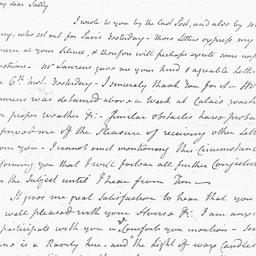 My dear Sally
I wrote to you by the last Post, and also by M
ny, who set out for Paris Yesterday - those Letters express my
ern at your Silence, & therefore will perhaps excite some unp
otions - Mr Laurens gave me your kind & agreable Letter
e 6th Inst. Yesterday - I sincerely thank You for it - Mr
urens was detained above a Week at Calais waiting
proper weather &c. - similar obstacles have probab
prived me of the Pleasure of receiving other Lett
om you - I cannot omit mentioning this Circumstance
forming you that I will forbear all further Conjectures
the Subject until I hear from You -
It gives me great Satisfaction to hear that you
well pleased with your House &c. I am anx
participate with you in the Comforts you mention -
is a Rarity here - and the Light of wax Candles